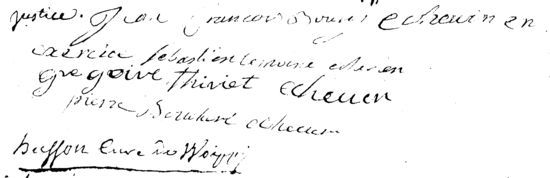 justice. Jean francois Bouri Echeuin en
exercice sebastien lemoine echeuin
gregoire thiriet echeuen
pierre echeuin
buffon Cure de Woippy